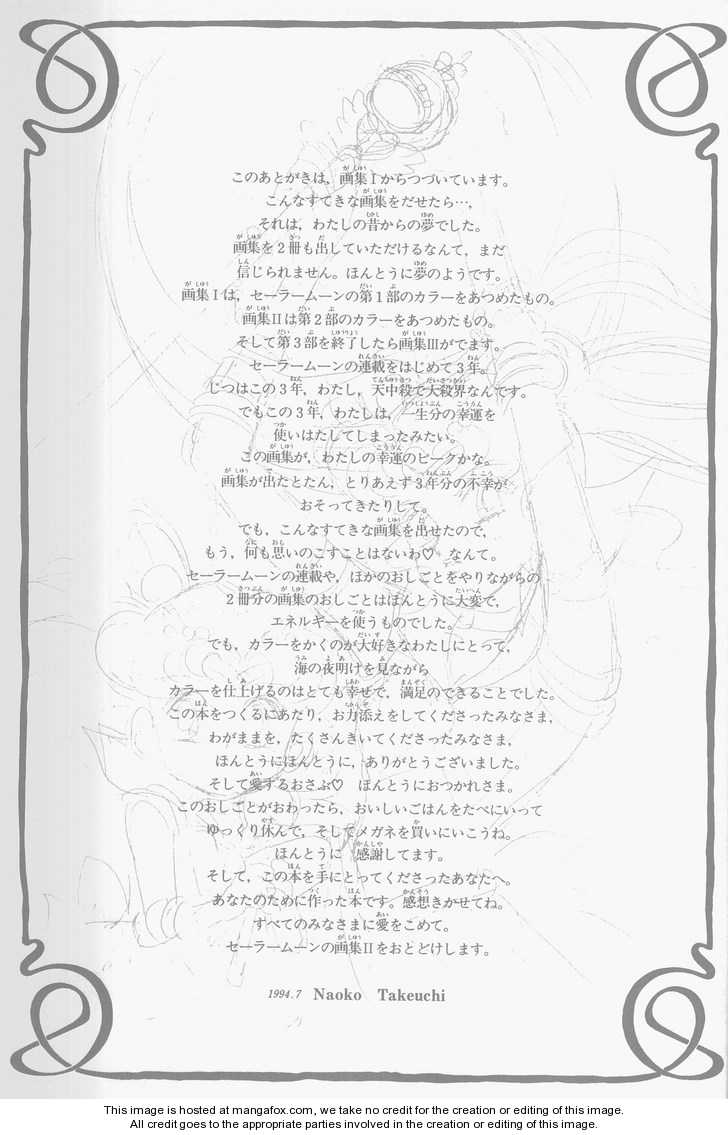 このあとがきは，画集Ⅰからつづいています。
こんなすてきな画集をだせたら…，
それは，わたしの昔からの夢でした。
画集を２冊も出していただけるなんて，まだ
信じられません。ほんとうに夢のようです。
画集Ⅰは，セーラームーンの第１部のカラーをあつめたもの。
画集Ⅱは第２部のカラーをあつめたもの。
そして第３部を終了したら画集Ⅲがでます。
セーラームーンの連載をはじめて３年。
じつはこの３年，わたし，天中殺で大殺界なんです。
でもこの３年，わたしは，一生分の幸運を
使いはたしてしまったみたい。
この画集が，わたしの幸運のピークかな。
画集が出たとたん，とりあえず３年分の不幸が
おそってきたりして。
でも，こんなすてきな画集を出せたので，
もう，何も思いのこすことはないわ♡　なんて。
セーラームーンの連載や，ほかのおしごとをやりながらの
２冊分の画集のおしごとはほんとうに大変で，
エネルギーを使うものでした。
でも，カラーをかくのが大好きなわたしにとって，
海の夜明けを見ながら
カラーを仕上げるのはとても幸せで，満足のできることでした。
この本をつくるにあたり，お力添えをしてくださったみなさま，
わがままを，たくさんきいてくださったみなさま，
ほんとうにほんとうに，ありがとうございました。
そして愛するおさぶ♡　ほんとうにおつかれさま。
このおしごとがおわったら，おいしいごはんをたべにいって
ゆっくり休んで，そしてメガネを買いにいこうね。
ほんとうに　感謝してます。
そして，この本を手にとってくださったあなたへ。
あなたのために作った本です。感想きかせてね。
すべてのみなさまに愛をこめて。
セーラームーンの画集Ⅱをおとどけします。
1994.7　Naoko　Takeuchi
This image is hosted at mangafox.com, we take no credit for the creation or editing of this image.
All credit goes to the appropriate parties involved in the creation or editing of this image.